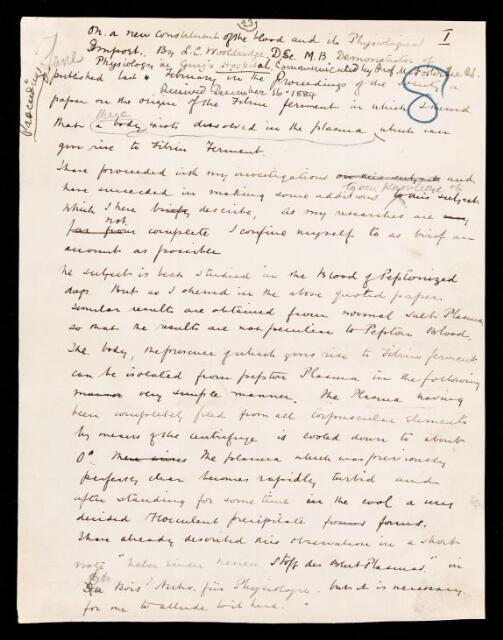 23
I
On a new constituent of the blood and its Physiological
Import. By L.C. Wooldridge, D.Sc. M.B Demonstrator of
Physiology in Guy's Hospital, Communicated by Prof. M. Foster Sec R.S.
Proceedings
published last February in the Proceedings of the Society a
Received December 16th 1884
8
paper on the origin of the Fibrin ferment in which I showed
that there a body exists dissolved in the plasma which can
give rise to Fibrin Ferment.
I have proceeded with my investigations on this subject and
have succeeded in making some additions to our knowledge of this subject
which I here briefly describe, as my researches are
far from not complete I confine myself to as brief an
account as possible
The subject is best studied in the Blood of Peptonized
dogs. But as I showed in the above quoted paper
similar results are obtained from normal Salt Plasma,
so that the results are not peculiar to Pepton Blood.
The body, the presence of which gives rise to Fibrin ferment
can be isolated from pepton Plasma in the following
manner very simple manner. The Plasma having
been completely freed from all corpuscular elements
by means of the centrifuge is cooled down to about
0°. The plasma which was previously
perfectly clear becomes rapidly turbid and
after standing for some time in the cool a very
decided flocculent precipitate forms forms.
I have already described this observation in a short
note "Ueber einen neuen Stoff des Blut Plasmas." in
Du Bois' Archiv. für Physiologie. but it is necessary
for me to allude to it here.